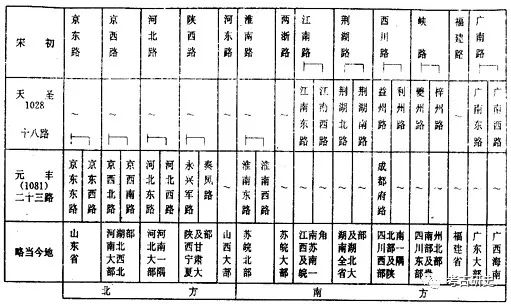 宋初
京东路
京西路
河北路
陕西路
河东路
淮南路
两浙路
江南路
荆湖路
西川路
峡路
福建路
广南路
天圣
1028
十八路
~
~
~
~
~
~
~
江南东路
江南西路
荆湖北路
荆湖南路
益州路
利州路
夔州路
梓州路
~
广南东路
广南西路
元丰
(1081)
二十三路
京东东路
京东西路
京西北路
京西南路
河北东路
河北西路
永兴军路
秦凤路
~
淮南东路
淮南西路
~
~
~
~
~
成都府路
~
~
~
~
~
~
略当今地
山东省
河南大部
湖北西北
部
河北大部
河南一隅
陕西宁夏
及甘肃大
部
山西大部
苏皖北部
苏皖大部
江西及皖
南苏南一
角
湖南全省
及湖北大
部
四川西部及陕
南一隅
四川南部及贵
州北部
福建省
广东大部
广西海南
北方
南方
考古研史